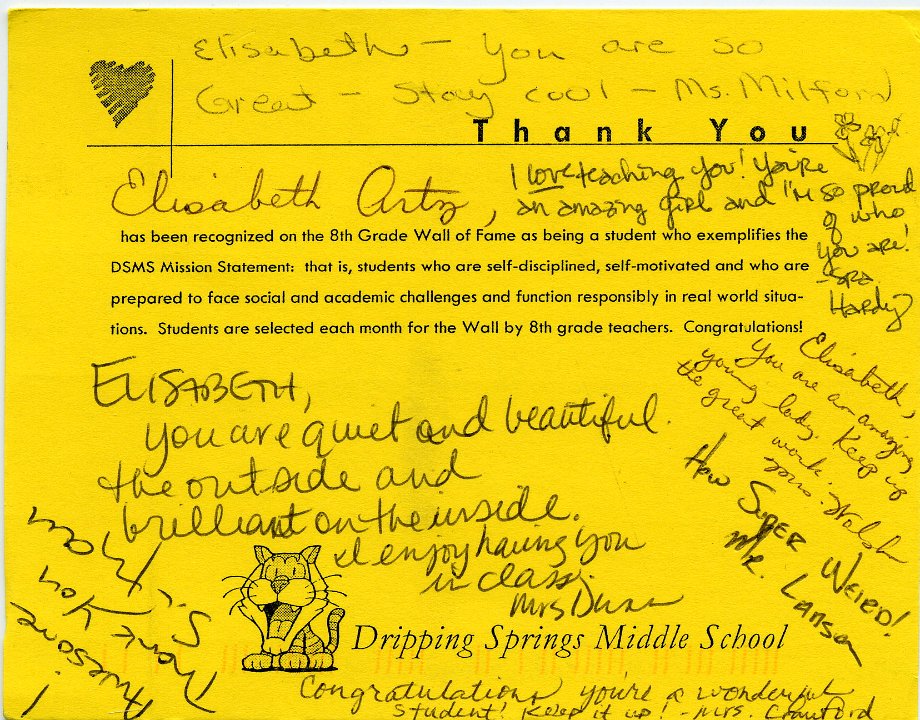 Elisabeth - You are so
Great - Stay cool - Ms. Milford
Thank You
Elisabeth Artz,
I love teaching you! You're
an amazing girl and I'm so proud
of who
you are!
- Sra.
Hardy
has been recognized on the 8th Grade Wall of Fame as being a student who exemplifies the
DSMS Mission Statement: that is, students who are self-disciplined, self-motivated and who are
prepared to face social and academic challenges and function responsibly in real world situa-
tions. Students are selected each month for the Wall by 8th grade teachers. Congratulations!
Elisabeth,
You are an amazing
young lady. Keep up
the great work.
Mrs. Walsh
ELISABETH,
you are quiet and beautiful
the outside and
brilliant on the inside.
I enjoy having you
in class.
Mrs Dunn
HOW SUPER WEIRD!
Mr. Larson
You
Awesome!
Dripping Springs Middle School
Congratulations you're a wonderful
student! Keep it up! - Mrs. Crawford